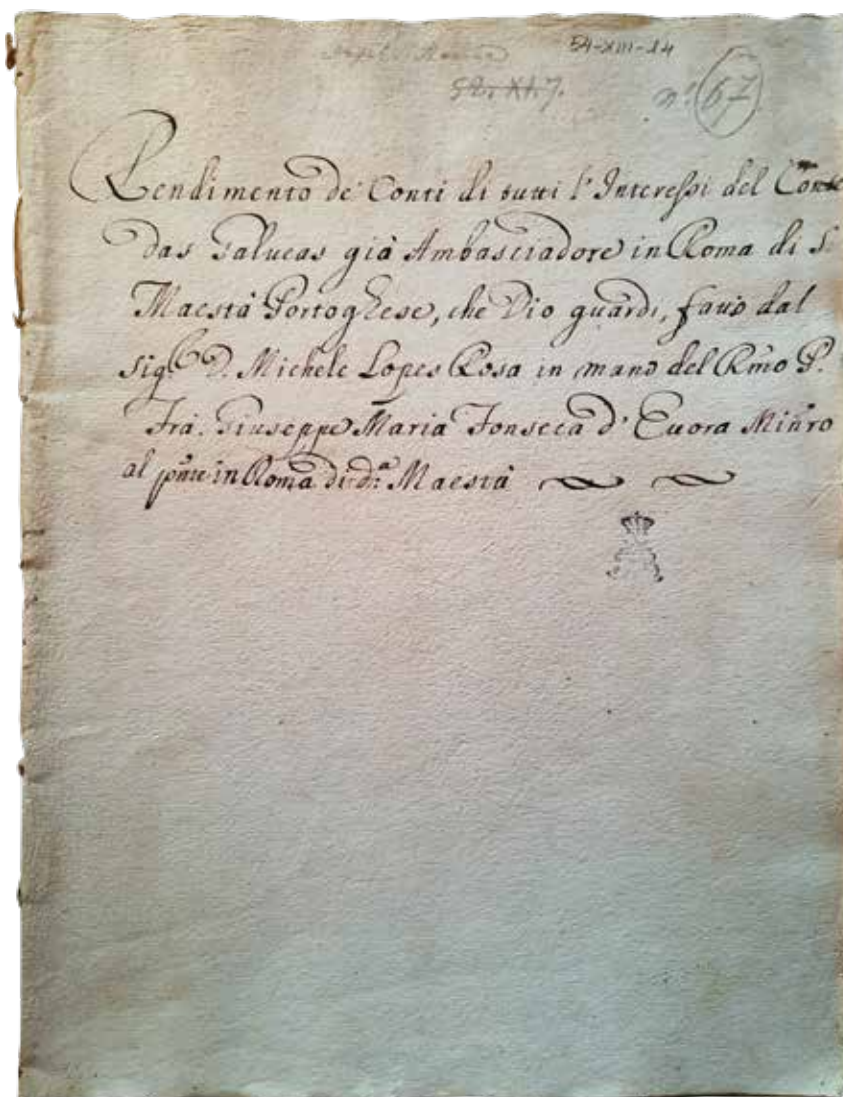 54-XIII-14
52. XI. 7.
nº 67
Rendimento de' Conti di tutti l'Interessi del Conte
das Galueas già Ambasciadore in Roma di S.
Maestà Portoghese, che Dio guardi, fatto dal
Sig.r D. Michele Lopes Rosa in mano del Rmo P.
Frà. Giuseppe Maria Fonseca d'Euora Minro
al pnte in Roma di d.a Maestà